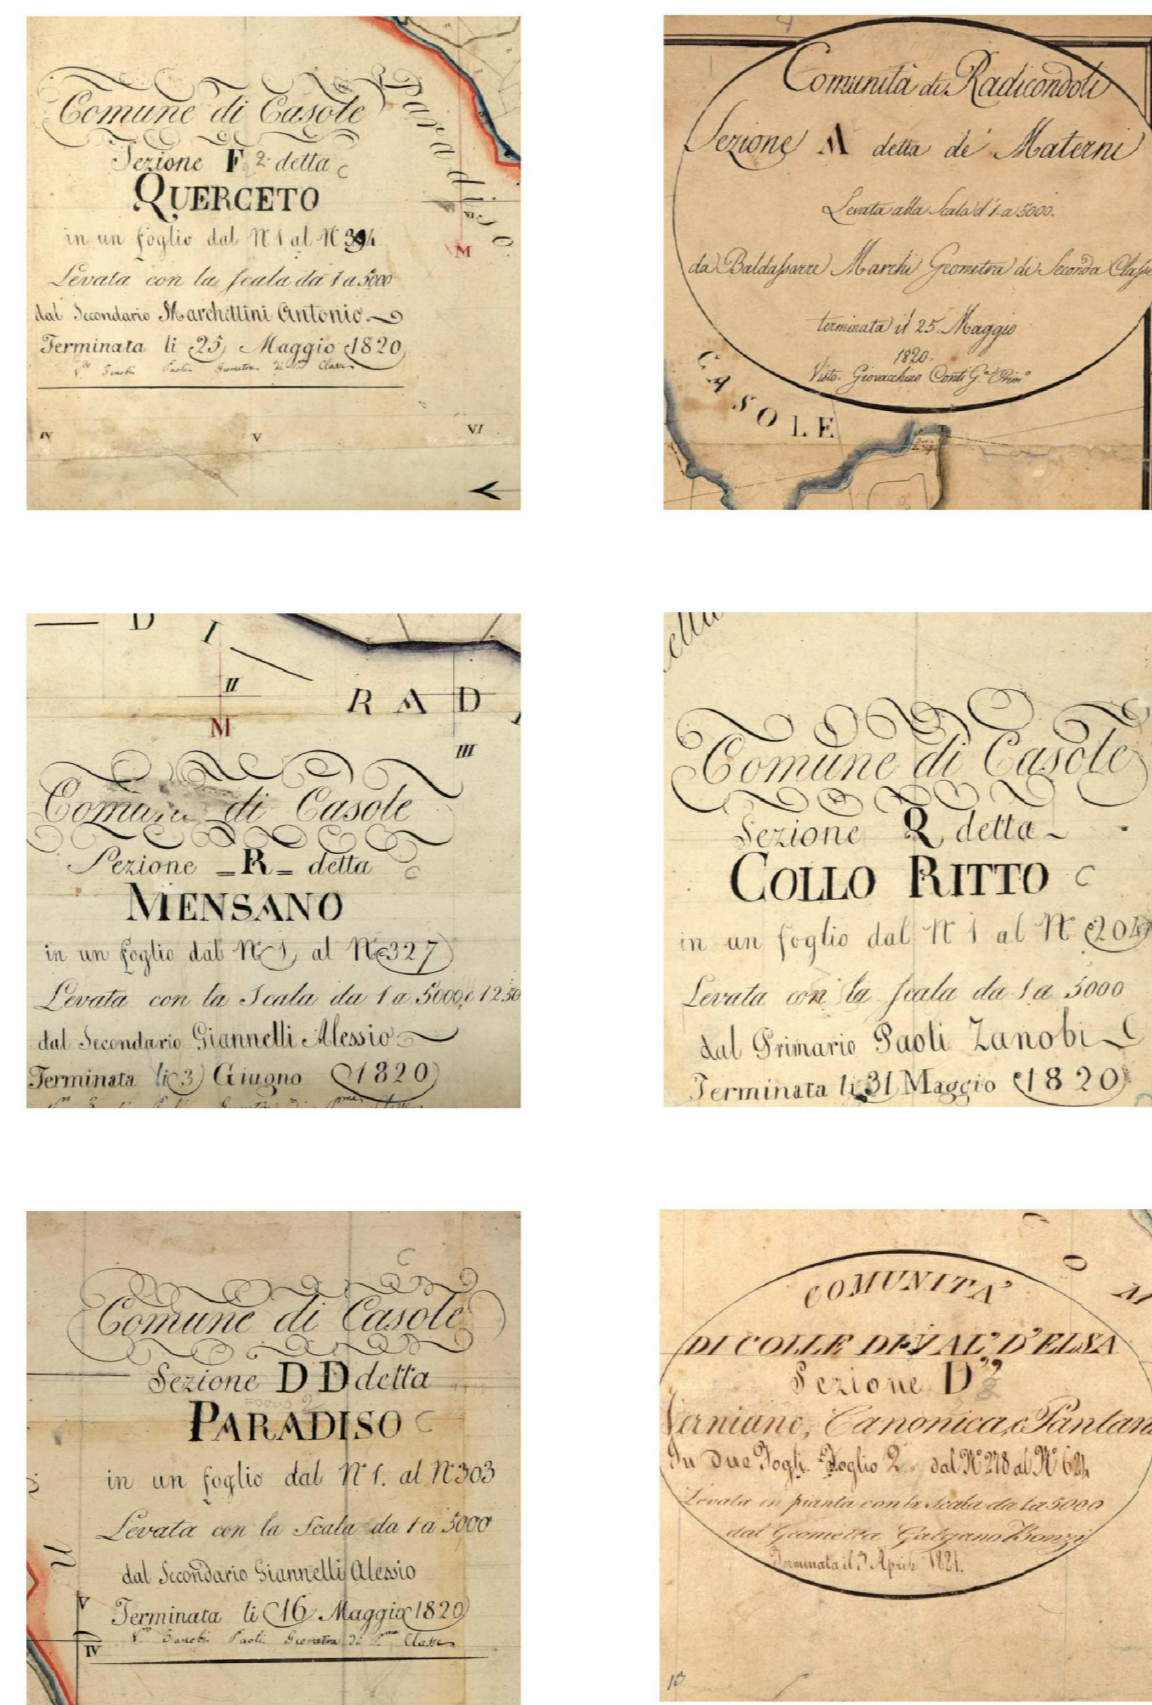 Comune di Casole
Paradiso
Sezione F 2 detta
C
QUERCETO
in un foglio dal N 1 al N 394
Levata con la scala da 1 a 5000
dal Secondario Marchettini Antonio
Terminata li 25 Maggio 1820
Vto Zenobi Paoli Geometra di Classe
XI
M
IV V VI
Comunità di Radicondoli
Sezione A detta de' Materni
Levata alla Scala d'1 a 5000.
da Baldassarre Marchi Geometra di Seconda Classe
terminata il 25 Maggio
1820.
Visto. Giovacchino Conti
CASOLE
D I RAD
II
M
III
Comune di Casole
Sezione R detta
C
MENSANO
in un foglio dal N 1 al N 327
Levata con la Scala da 1 a 5000 e 1250
dal Secondario Giannelli Alessio
Terminata li 3 Giugno 1820
Comune di Casole
Sezione Q detta
COLLO RITTO C
in un foglio dal N 1 al N 204
Levata con la scala da 1 a 5000
dal Primario Paoli Zanobi
Terminata li 31 Maggio 1820
C
Comune di Casole
Sezione DD detta
PARADISO C
in un foglio dal N 1. al N 303
Levata con la Scala da 1 a 5000
dal Secondario Giannelli Alessio
Terminata li 16 Maggio 1820
Vto Zanobi Paoli Geometra di Classe
V
IV
C O M
COMUNITA'
DI COLLE DI VAL' D'ELSA
Sezione D'
Verniano, Canonica, e Pantan
In due Fogli. Foglio 2. dal N 278 al N 624
Levata in pianta con la Scala da 1 a 5000
dal Geometra Galgano Bonzi
Terminata il Aprile 1821.